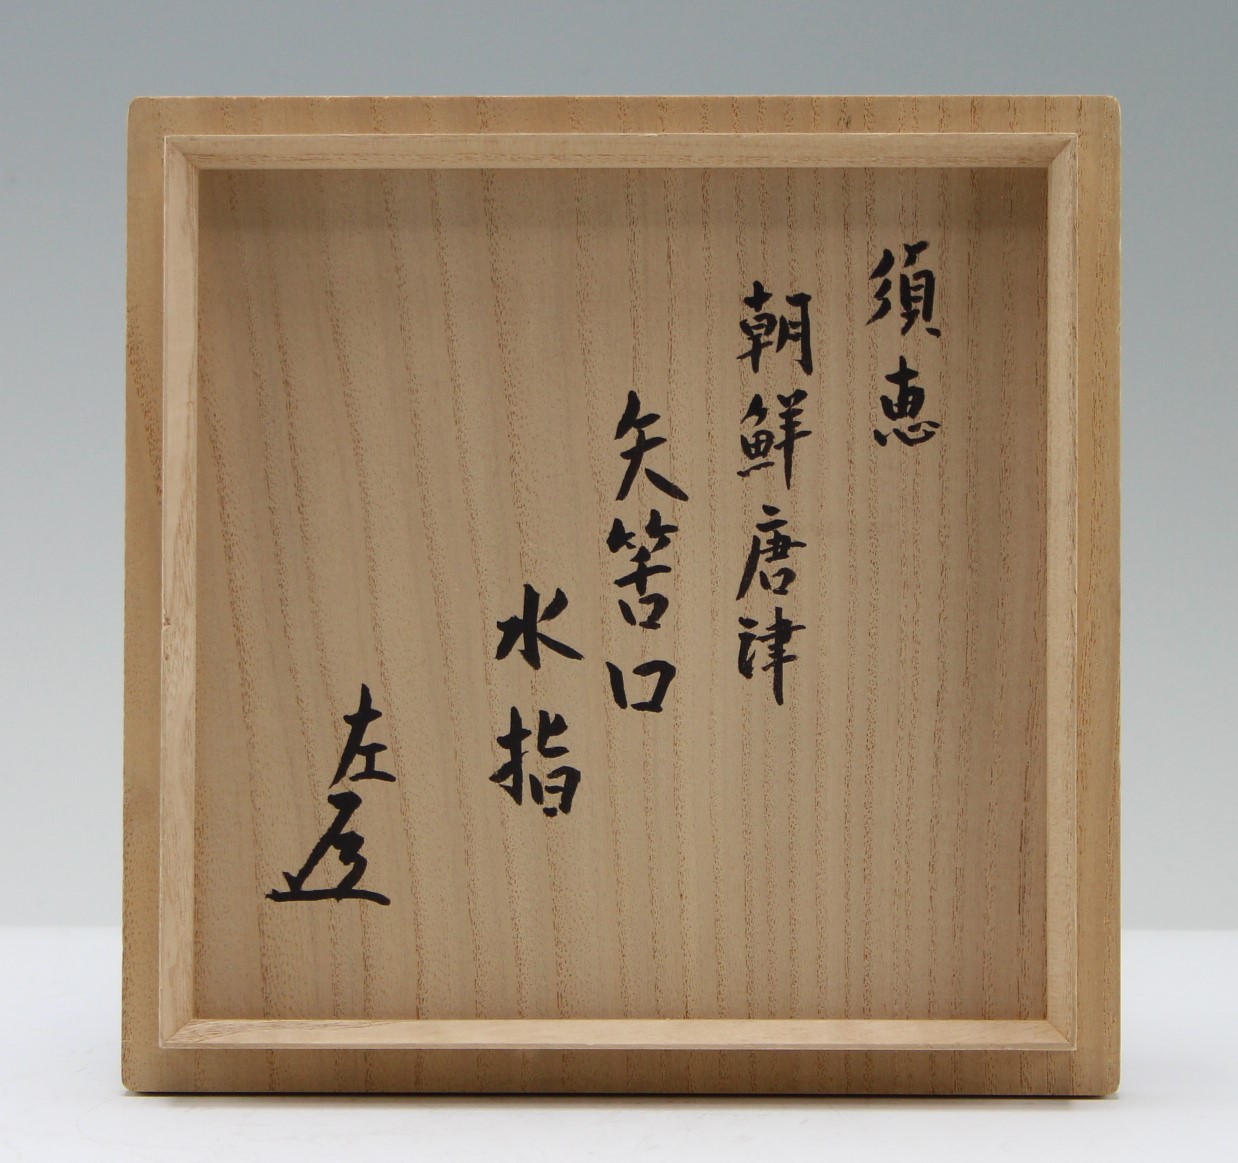 須恵
朝鮮唐津
矢筈口
水指
左